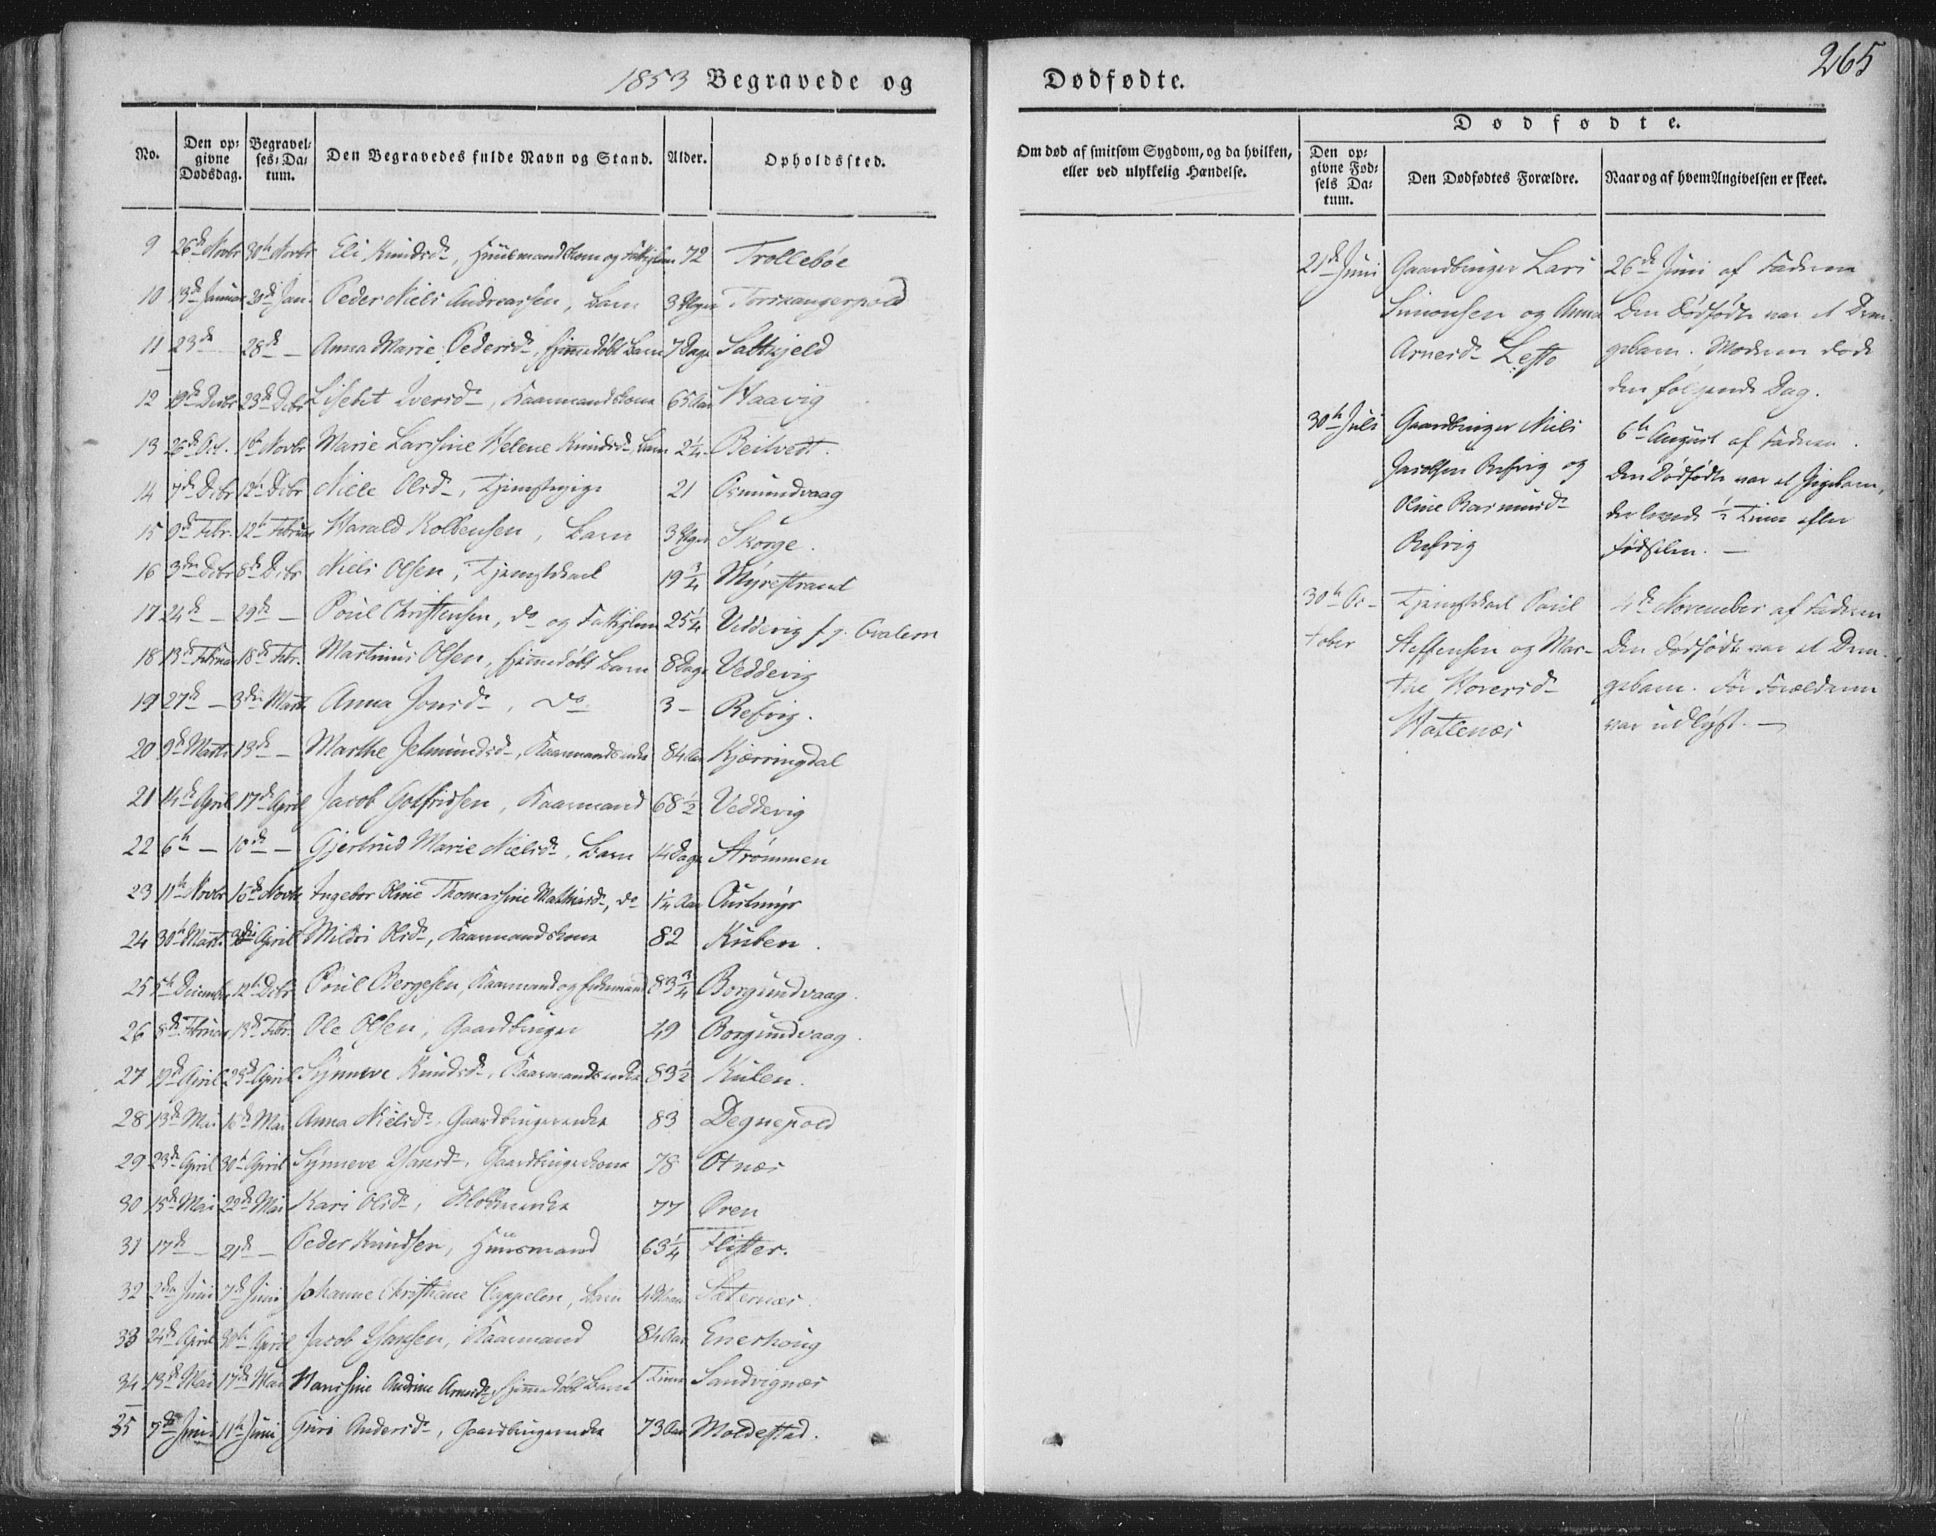 1853 Begravede og
No. Den opgivne Dødsdag. Begravelses-Datum. Den Begravedes fulde Navn og Stand. Alder. Opholdssted.
9 26de Novbr 30te Novbr Eli Knudsdr, Huusmandskone og 72 Trollebøe
10 13de Januar 20de Jan. Peder Niels Andreassen, Barn 3 Uger Torskangerpold
11 23de 28de – Anna Marie Pedersdr, hjemmedøbt Barn 7 Dage Saltkjeld
12 19de Decbr 23de Decbr Lisebet Iversdr, Kaarmandskone 65 Aar Haavig
13 26de Oct. 1ste Novbr Marie Larssine Helene Knudsdr, Barn 2¼ Beitvedt.
14 7de Decbr 12te Decbr Nille Olsdr, Tjenestepige 21 Osmundvaag
15 9de Febr. 12te Februar Harald Kolbensen, Barn 3 Uger Skorge.
16 3die Decbr 8de Decbr Niels Olsen, Tjenestekarl 19¾ Myrestrand
17 24de – 29de – Poul Christensen, do og Fattiglem 25¼ Veddevig
18 13de Februar 18de Febr. Martinus Olsen, hjemmedøbt Barn 8 Dage Veddevig
19 27de – 3die Marts Anna Jonsdr, do 3 – Refvig.
20 9de Marts 13de – Marthe Jelmundsdr, Kaarmandsenke 84 Aar Kjærringdal
21 14de April 17de April Jacob Gotfridsen, Kaarmand 68½ Veddevig
22 6te – 10de – Gjertrud Marie Nielsdr, Barn 14 Dage Strømmen
23 11te Novbr 16de Novbr Ingebor Oline Thomassine Mathiasdr, do 1¼ Aar
24 30te Marts 3die April Mildri Olsdr, Kaarmandskone 82 Kuben.
25 5te December 12te Decbr Poul Børgesen, Kaarmand og 83¾ Borgundvaag.
26 8de Februar 13de Febr. Ole Olsen, Gaardbruger 49 Borgundvaag.
27 19de April 25de April Synneve Knudsdr, Kaarmandsenke 83½ Kuben.
28 13de Mai 16de Mai Anna Nielsdr, Gaardbrugerenke 83 Degnepold
29 23de April 30te April Synneve Hansdr, Gaardbrugerkone 78 Otnæs
30 15de Mai 22de Mai Kari Olsdr, 77 Øren
31 17de – 21de – Peder Knudsen, Huusmand 63¼ Flister.
32 2den Juni 7de Juni Johanne Christiane Cappelen, Barn Sæternæs.
33 24de April 30te April Jacob Hansen, Kaarmand 84 Aar Enerhoug
34 13de Mai 17de Mai Hanssine Andrine Arnesdr, hjemmedøbt Barn 1 Time Sandvignæs
35 7de Juni 11te Juni Guri Andersdr, Gaardbrugerenke 73 Aar Moldestad.
265
Dødfødte.
Om død af smitsom Sygdom, og da hvilken, eller ved ulykkelig Hændelse.
Dødfødte.
Den opgivne Fødsels Datum. Den Dødfødtes Forældre. Naar og af hvem Angivelsen er skeet.
21de Juni Gaardbruger Lars 26de Juni af Faderen
Simonsen og Anna Den Dødfødte var et Dren-
Arnesdr Lefto gebarn. Moderen døde
den følgende Dag.
30te Juli Gaardbruger Niels 6te August af Faderen.
Jacobsen Refvig og Den Dødfødte var et Pigebarn,
Oline Rasmusdr der levede ½ Time efter
Refvig Fødselen. –
30te Oc- Tjenestekarl Poul 4de November af Faderen
tober Steffensen og Mar- Den Dødfødte var et Dren-
the Hoversdr gebarn. Før Forældrene
Hatlenæs var udlyst. –